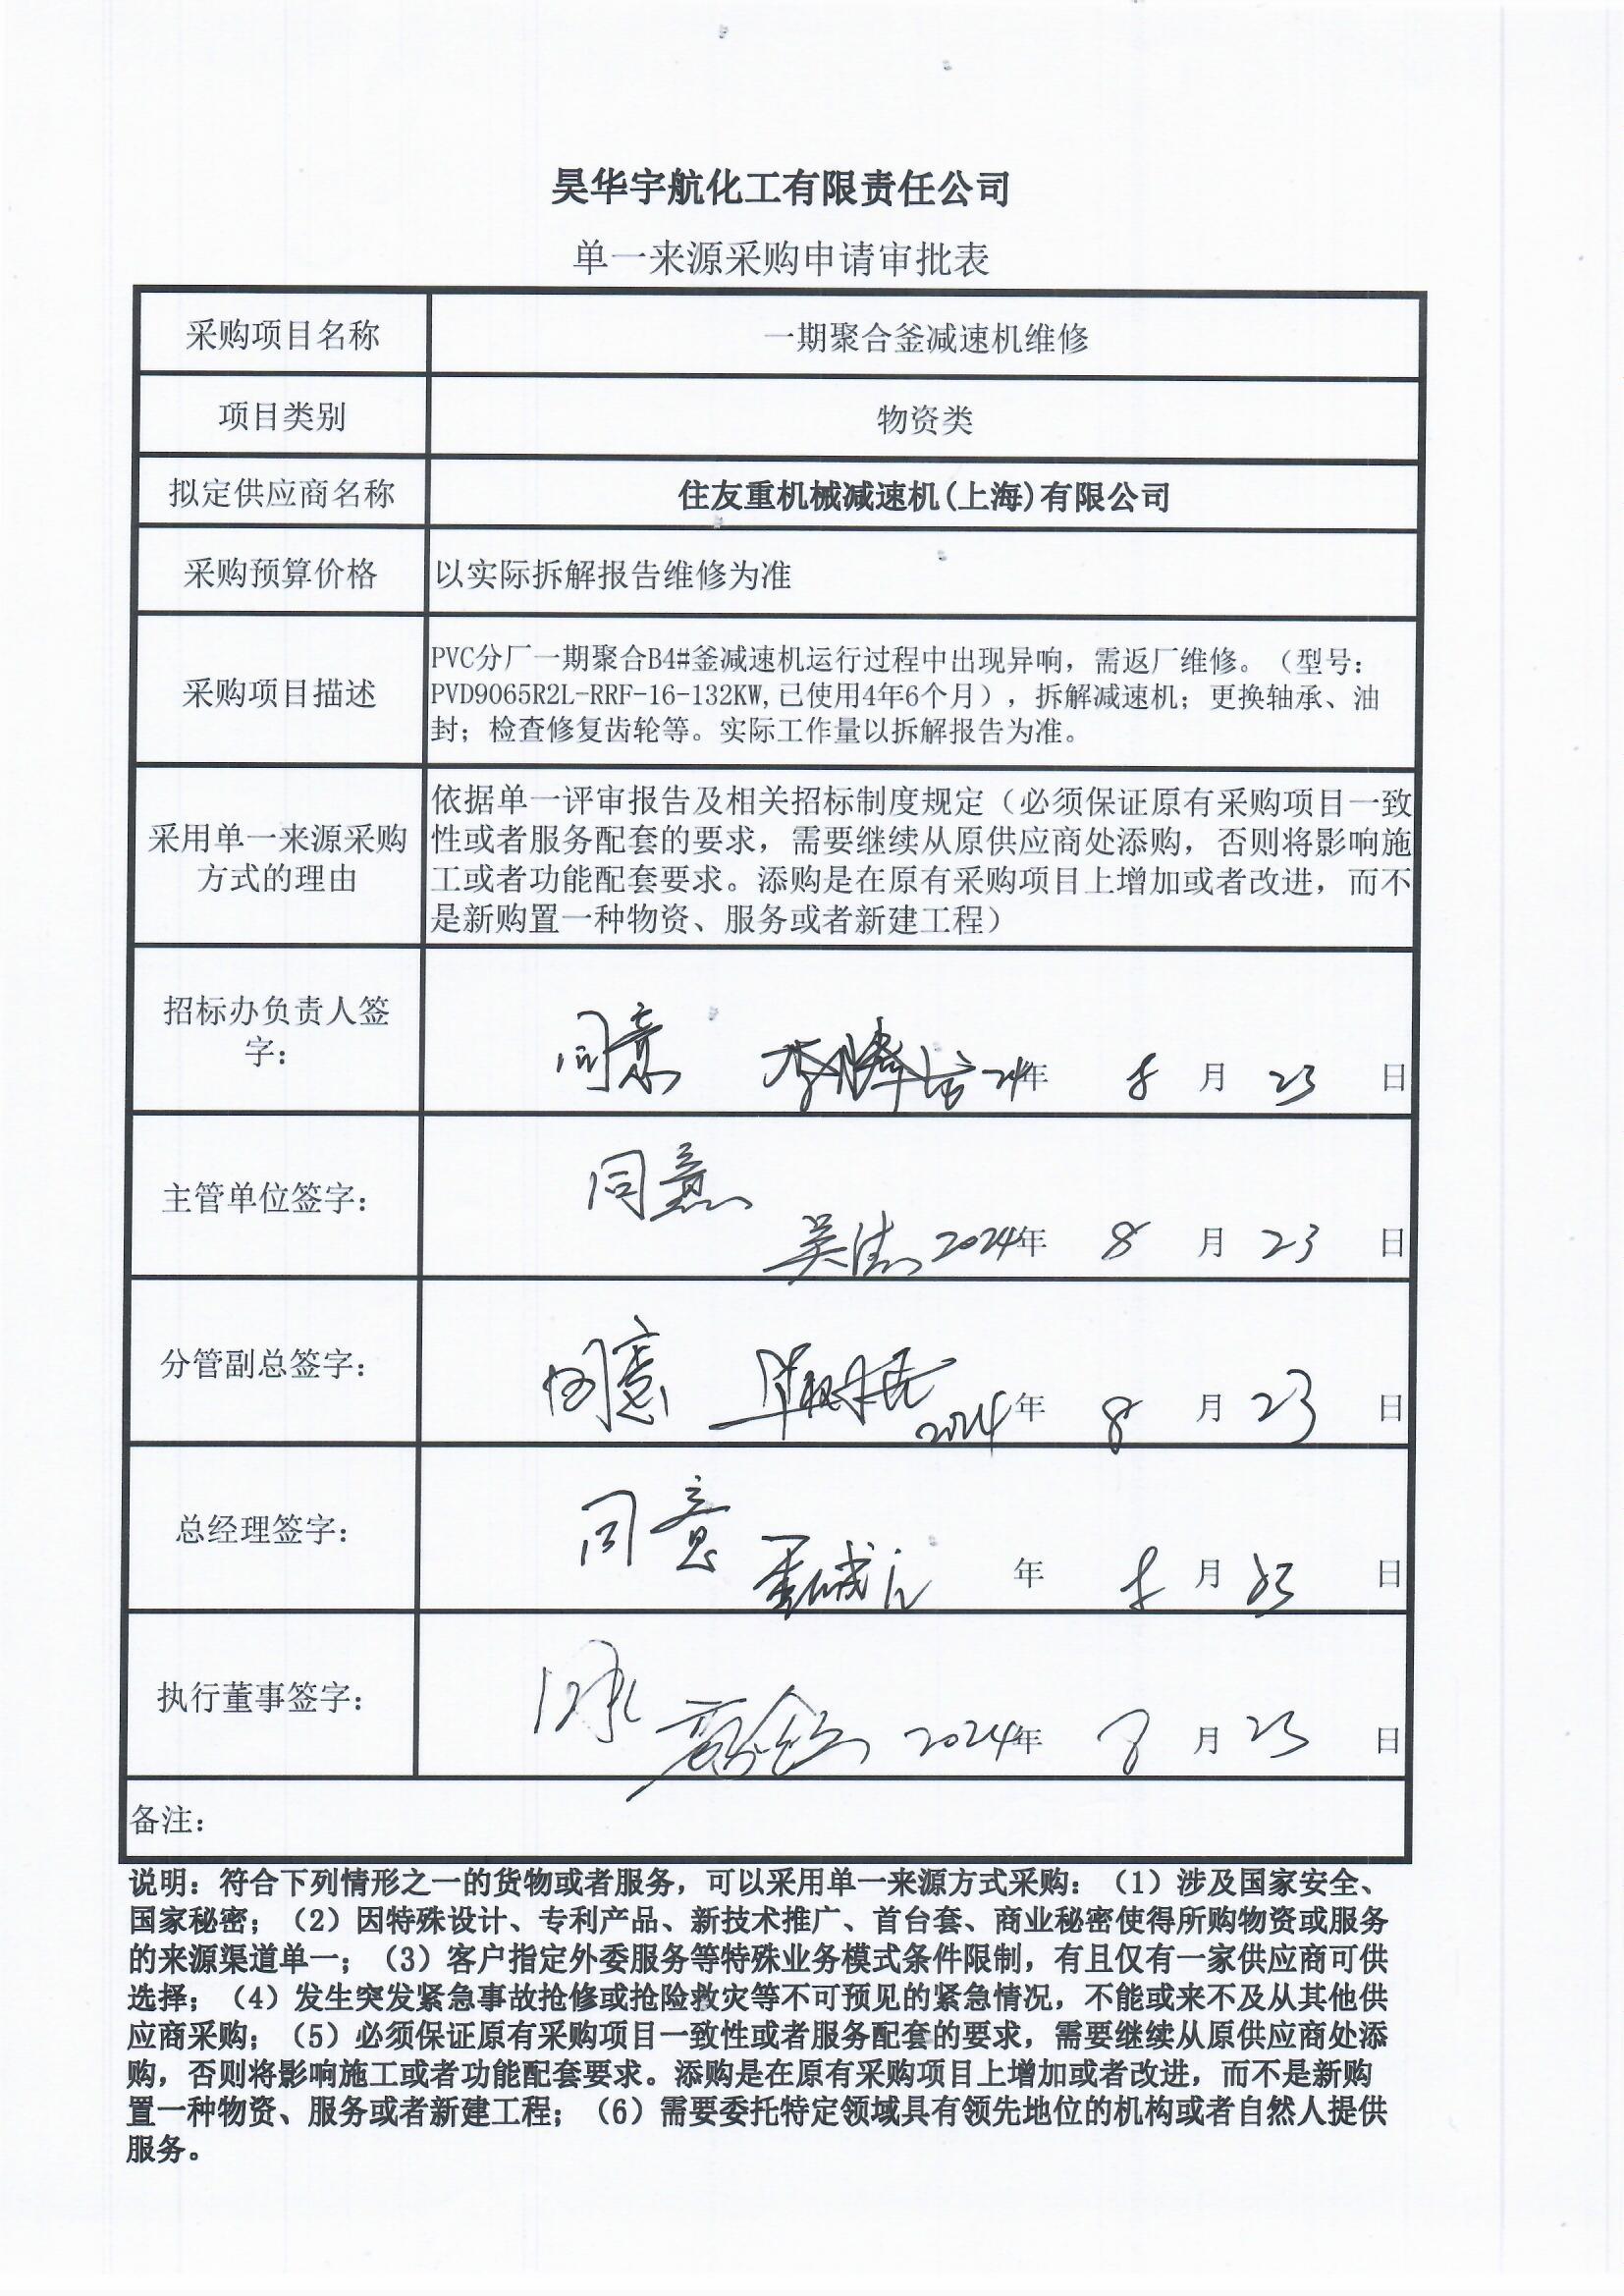 昊华宇航化工有限责任公司
单一来源采购申请审批表
采购项目名称
一期聚合釜减速机维修
项目类别
物资类
拟定供应商名称
住友重机械减速机(上海)有限公司
采购预算价格
以实际拆解报告维修为准
采购项目描述
PVC分厂一期聚合B4#釜减速机运行过程中出现异响，需返厂维修。（型号：
PVD9065R2L-RRF-16-132KW,已使用4年6个月），拆解减速机；更换轴承、油
封；检查修复齿轮等。实际工作量以拆解报告为准。
采用单一来源采购
方式的理由
依据单一评审报告及相关招标制度规定（必须保证原有采购项目一致
性或者服务配套的要求，需要继续从原供应商处添购，否则将影响施
工或者功能配套要求。添购是在原有采购项目上增加或者改进，而不
是新购置一种物资、服务或者新建工程）
招标办负责人签
字：
同意 24年 8 月 23 日
主管单位签字：
同意
2024年 8 月 23 日
分管副总签字：
同意
2024年 8 月 23 日
总经理签字：
同意
年 8 月 23 日
执行董事签字：
2024年 8 月 23 日
备注：
说明：符合下列情形之一的货物或者服务，可以采用单一来源方式采购：（1）涉及国家安全、
国家秘密；（2）因特殊设计、专利产品、新技术推广、首台套、商业秘密使得所购物资或服务
的来源渠道单一；（3）客户指定外委服务等特殊业务模式条件限制，有且仅有一家供应商可供
选择；（4）发生突发紧急事故抢修或抢险救灾等不可预见的紧急情况，不能或来不及从其他供
应商采购；（5）必须保证原有采购项目一致性或者服务配套的要求，需要继续从原供应商处添
购，否则将影响施工或者功能配套要求。添购是在原有采购项目上增加或者改进，而不是新购
置一种物资、服务或者新建工程；（6）需要委托特定领域具有领先地位的机构或者自然人提供
服务。